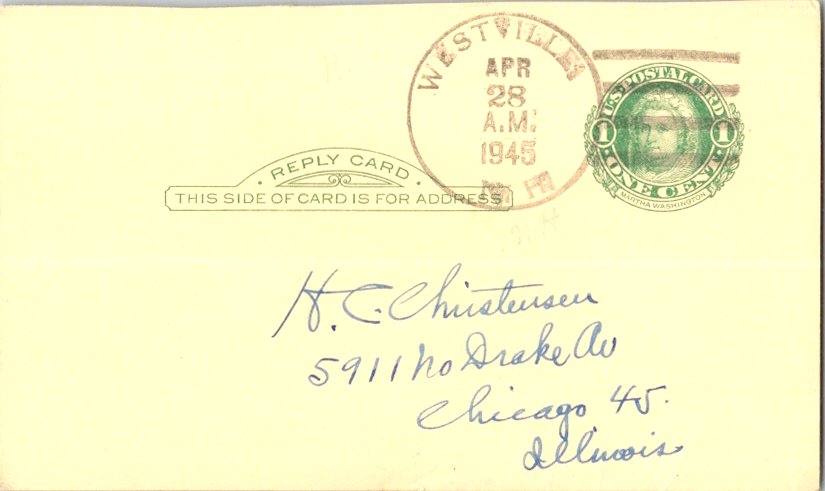 WESTVILLE
APR
28
A.M.
1945
N H
U.S. POSTAL CARD
1 1
ONE CENT
MARTHA WASHINGTON
REPLY CARD
THIS SIDE OF CARD IS FOR ADDRESS
H. C. Christensen
5911 No Drake Av
Chicago 45.
Illinois